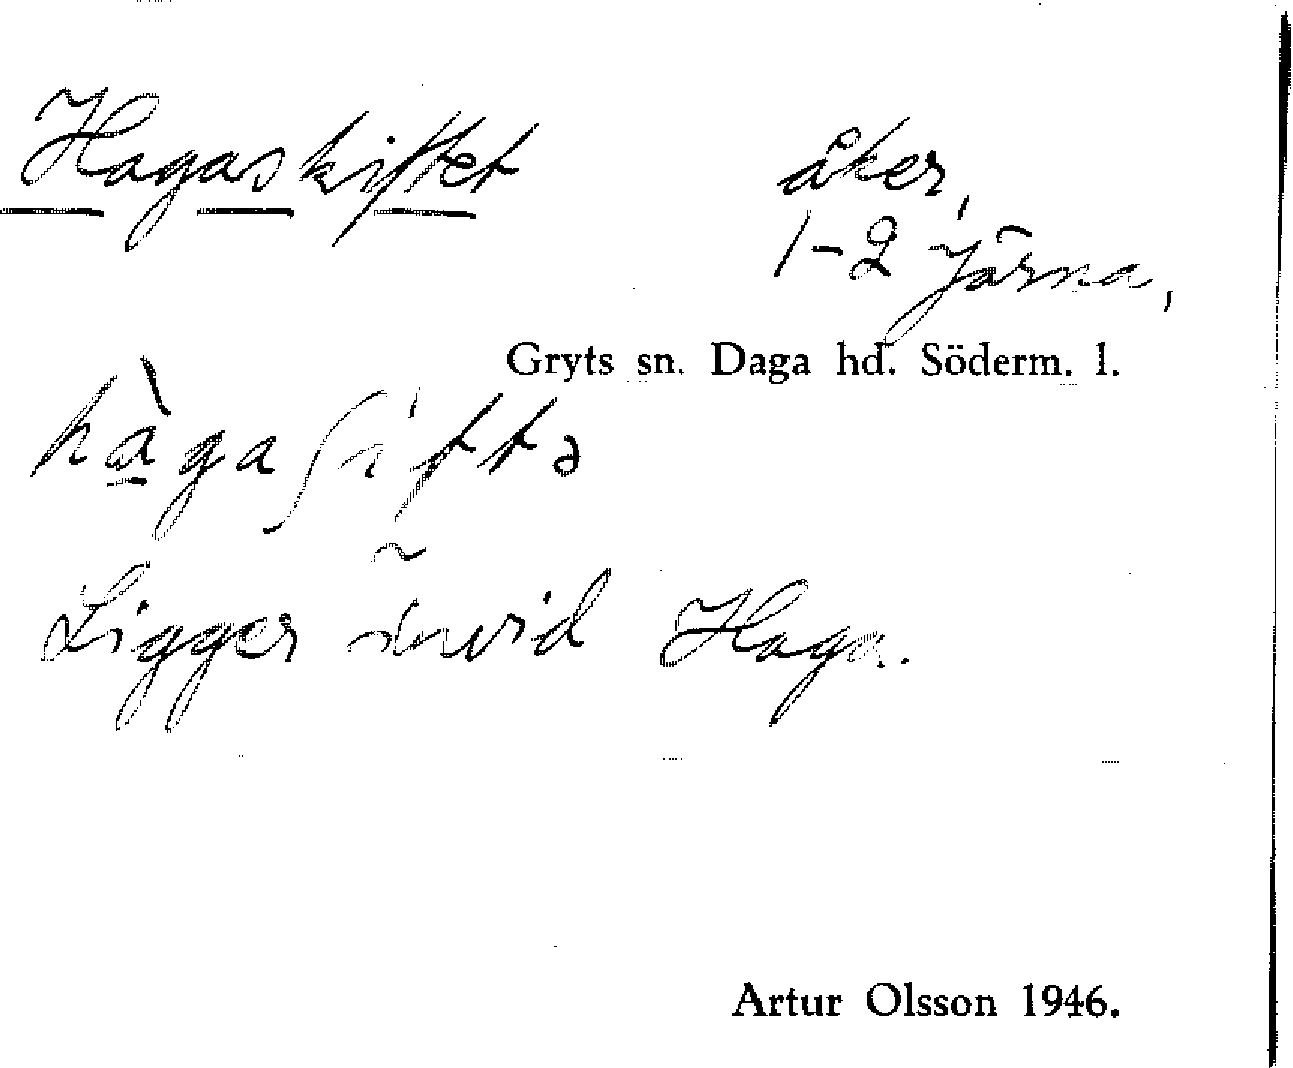 Hagaskiftet åker,
1-2 Järna,
Gryts sn. Daga hd. Söderm. l.
hàgaʃiftə
Ligger invid Haga.
Artur Olsson 1946.